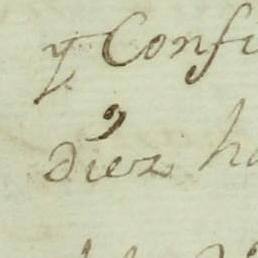 y Confi
diez ha